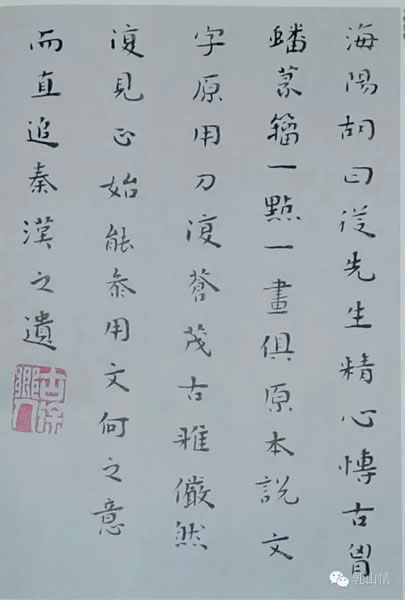 海陽胡曰從先生精心慱古胷
蟠蒃籀一點一畫俱原本說文
字原用刀復蒼茂古雅儼然
復見正始能叅用文何之意
而直追秦漢之遺
乳山情